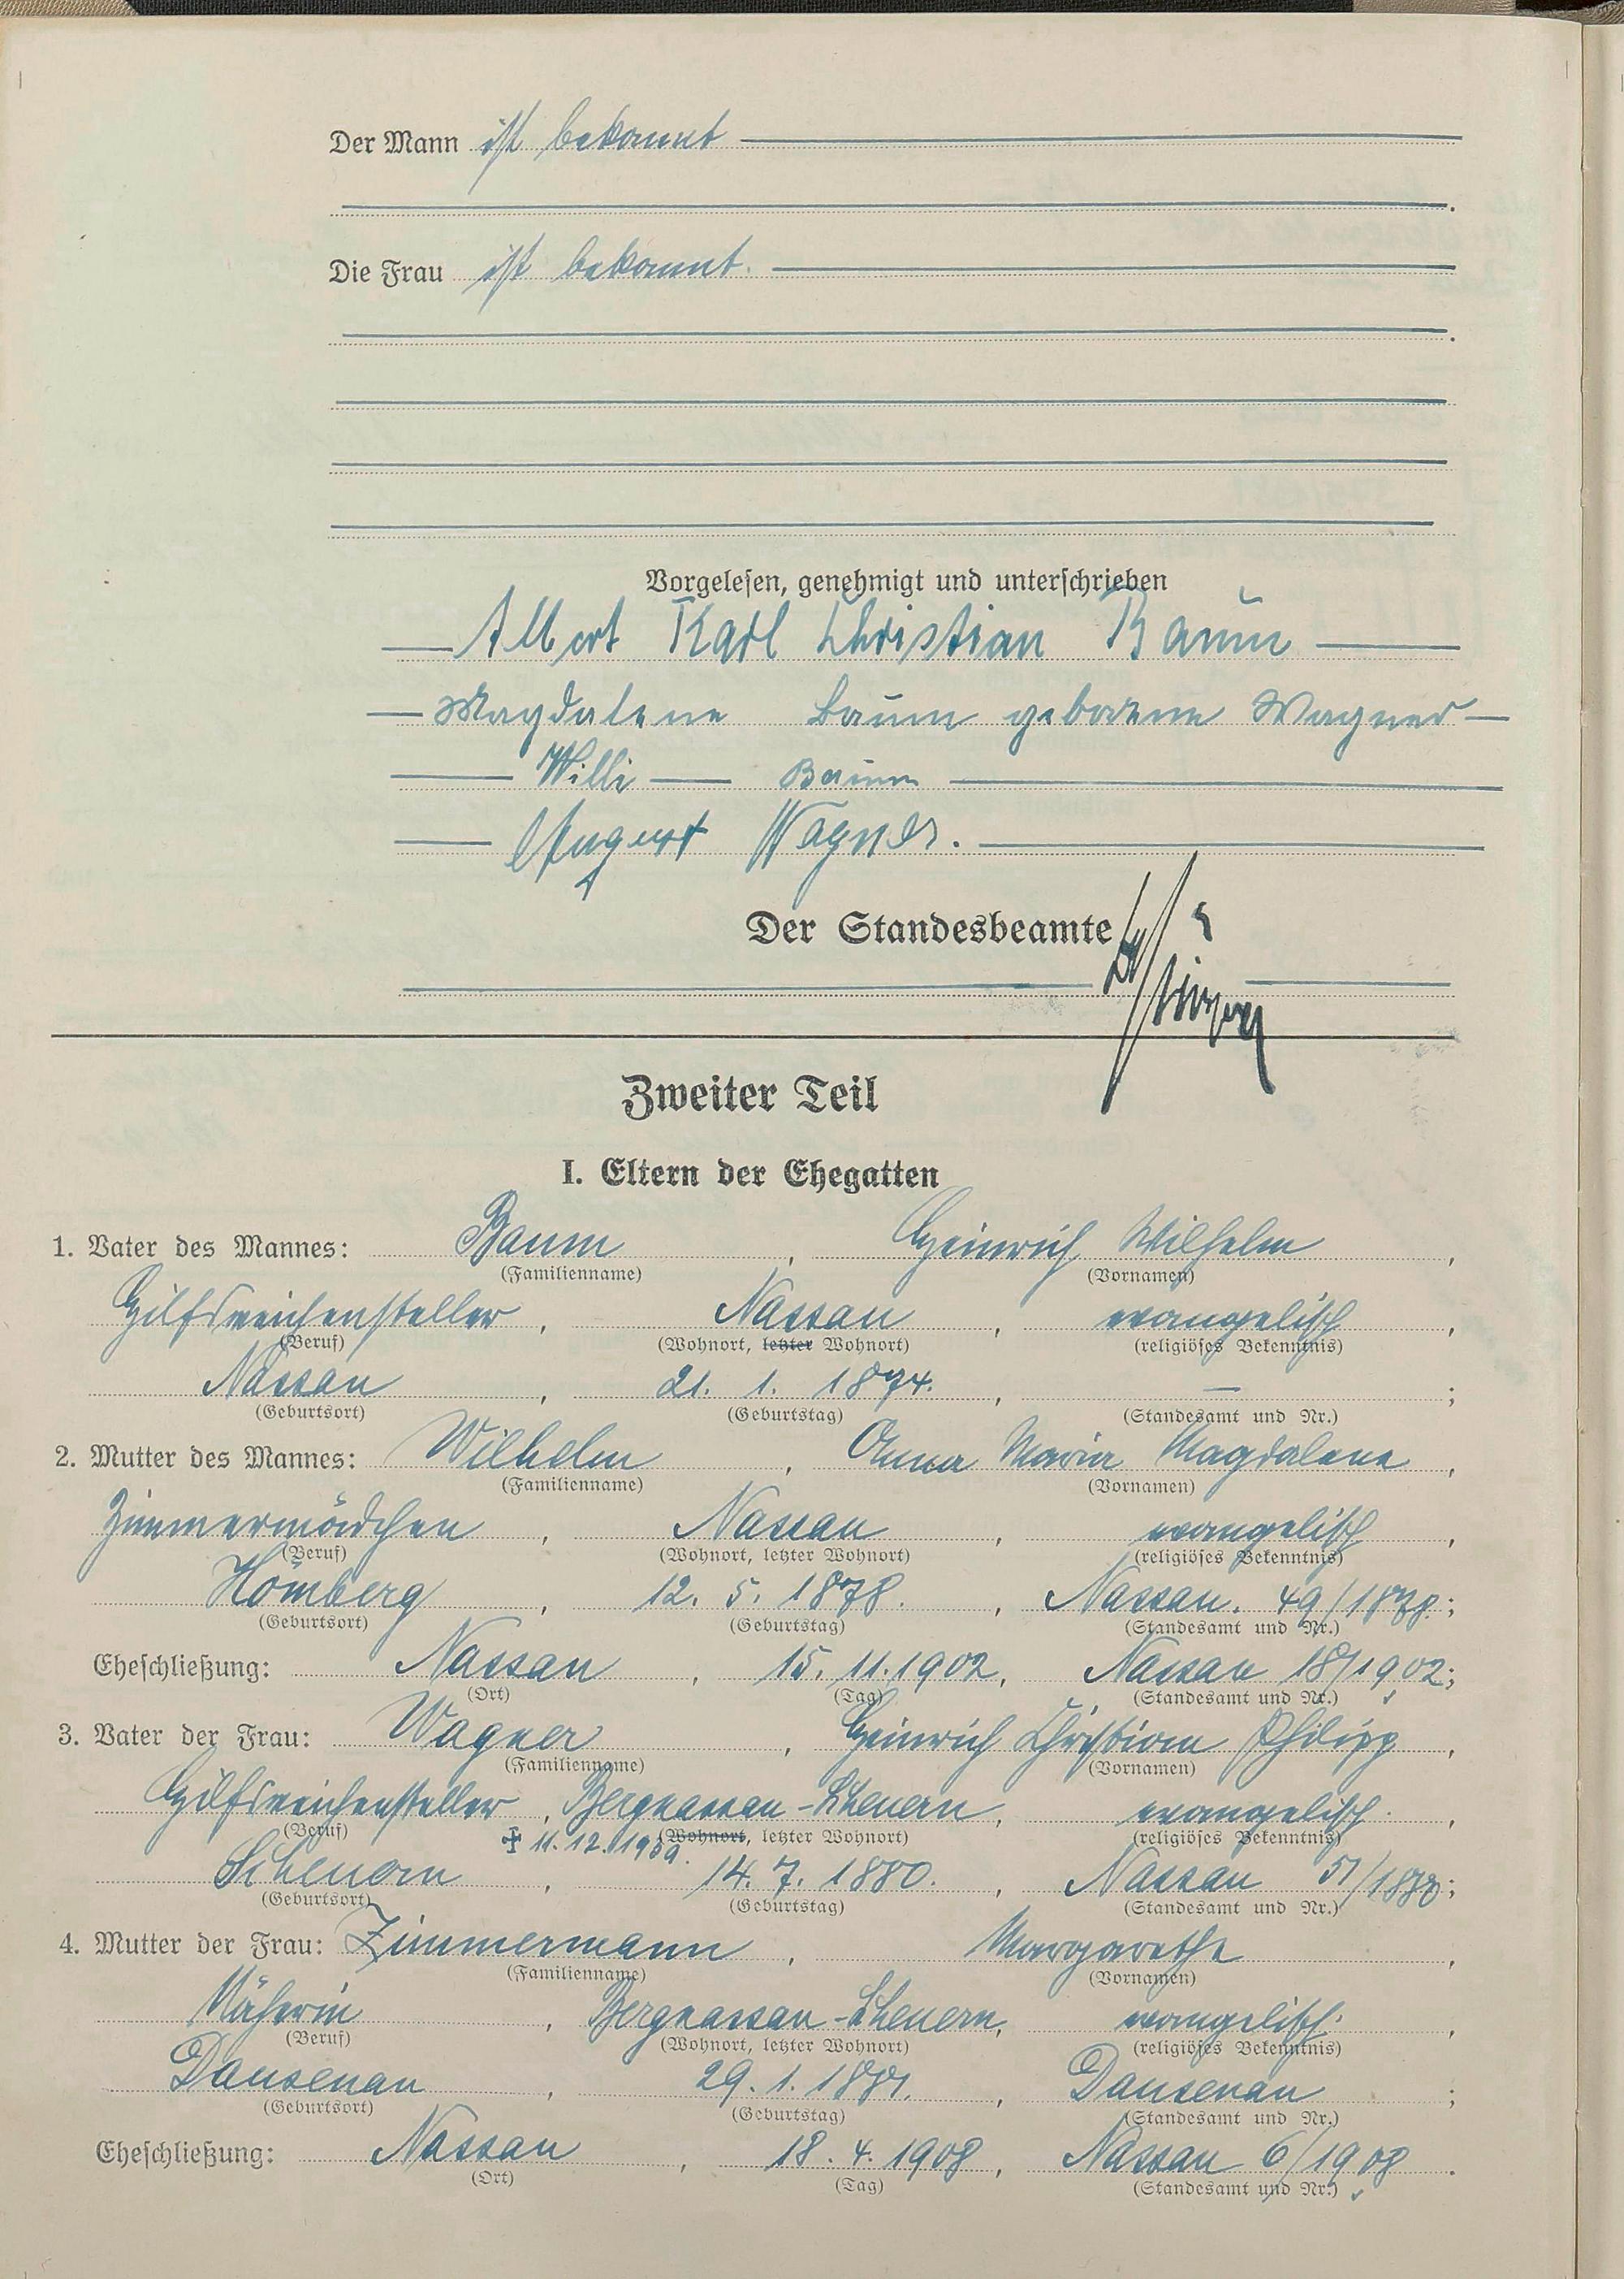 Der Mann ist bekannt
Die Frau ist bekannt.
Vorgelesen, genehmigt und unterschrieben
Albert Karl Christian Baum
Magdalene Baum geborene Wagner
Willi Baum
August Wagner.
Der Standesbeamte
Zweiter Teil
I. Eltern der Ehegatten
1. Vater des Mannes: Baum, Heinrich Wilhelm,
(Familienname) (Vornamen)
Hilfsweichensteller, Nassau, evangelisch,
(Beruf) (Wohnort, letzter Wohnort) (religiöses Bekenntnis)
Nassau, 21. 1. 1874., — ;
(Geburtsort) (Geburtstag) (Standesamt und Nr.)
2. Mutter des Mannes: Wilhelm, Anna Maria Magdalena,
(Familienname) (Vornamen)
Zimmermädchen, Nassau, evangelisch,
(Beruf) (Wohnort, letzter Wohnort) (religiöses Bekenntnis)
Hömberg, 12. 5. 1878., Nassau. 49/1878.;
(Geburtsort) (Geburtstag) (Standesamt und Nr.)
Eheschließung: Nassau, 15. 11. 1902, Nassau 18/1902;
(Ort) (Tag) (Standesamt und Nr.)
3. Vater der Frau: Wagner, Heinrich Christian Philipp,
(Familienname) (Vornamen)
Hilfsweichensteller, Bergnassau-Scheuern, evangelisch.,
(Beruf) (Wohnort, letzter Wohnort) (religiöses Bekenntnis)
✠ 11. 12. 1909.
Scheuern, 14. 7. 1880., Nassau 51/1880;
(Geburtsort) (Geburtstag) (Standesamt und Nr.)
4. Mutter der Frau: Zimmermann, Margarethe,
(Familienname) (Vornamen)
Näherin, Bergnassau-Scheuern, evangelisch.,
(Beruf) (Wohnort, letzter Wohnort) (religiöses Bekenntnis)
Dausenau, 29. 1. 1881., Dausenau ;
(Geburtsort) (Geburtstag) (Standesamt und Nr.)
Eheschließung: Nassau, 18. 4. 1908, Nassau 6/1908.
(Ort) (Tag) (Standesamt und Nr.)